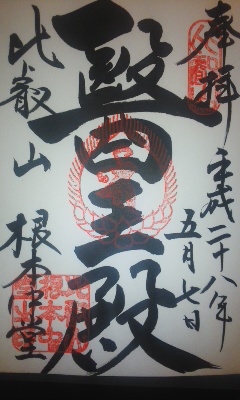 奉拝
平成二十八年
五月七日
醫王殿
比叡山
根本中堂